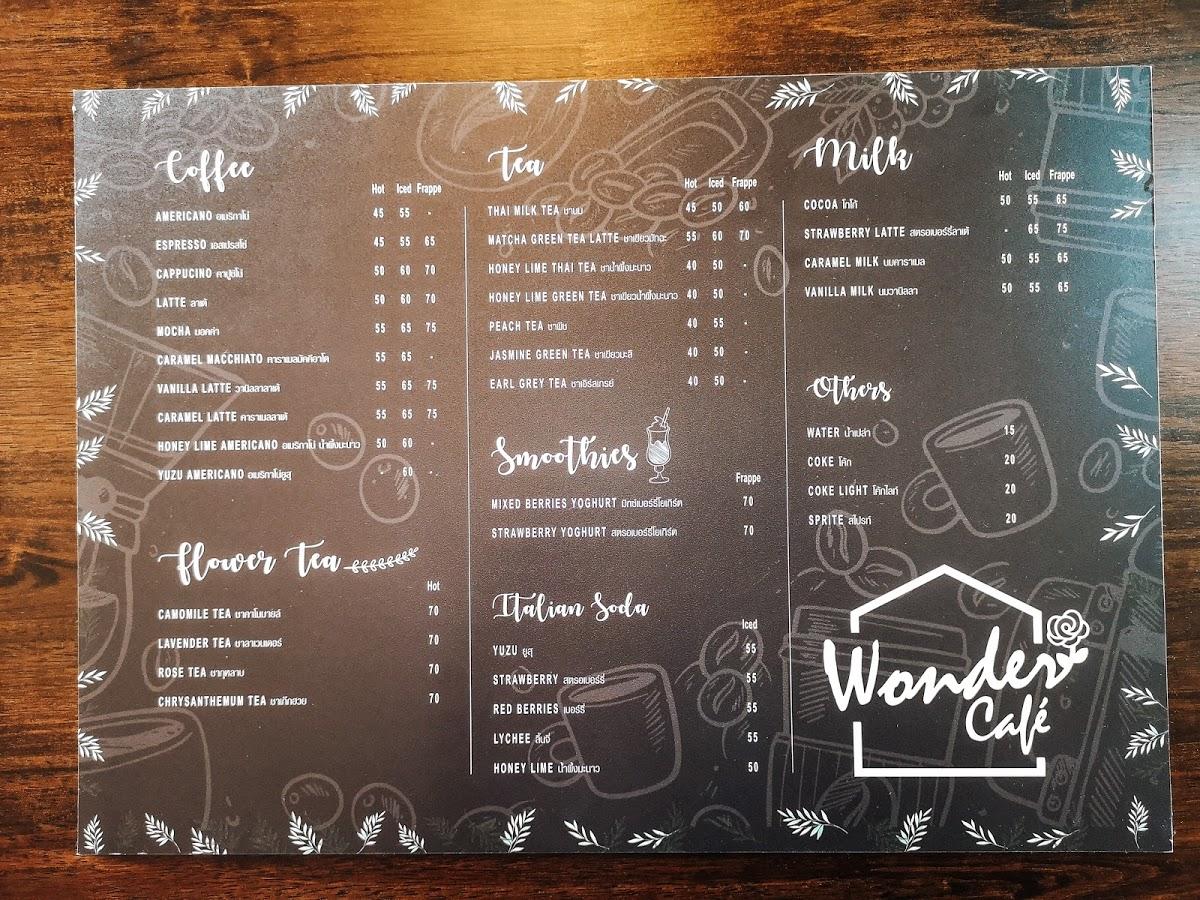 Coffee
Hot Iced Frappe
AMERICANO อเมริกาโน่ 45 55 -
ESPRESSO เอสเปรสโซ่ 45 55 65
CAPPUCINO คาปูชิโน่ 50 60 70
LATTE ลาเต้ 50 60 70
MOCHA มอคค่า 55 65 75
CARAMEL MACCHIATO คาราเมลมัคคิอาโต 55 65 -
VANILLA LATTE วานิลลาลาเต้ 55 65 75
CARAMEL LATTE คาราเมลลาเต้ 55 65 75
HONEY LIME AMERICANO อเมริกาโน่ น้ำผึ้งมะนาว 50 60 -
YUZU AMERICANO อเมริกาโน่ยูสุ - 60 -
Flower Tea
Hot
CAMOMILE TEA ชาคาโมมายล์ 70
LAVENDER TEA ชาลาเวนเดอร์ 70
ROSE TEA ชากุหลาบ 70
CHRYSANTHEMUM TEA ชาเก๊กฮวย 70
Tea
Hot Iced Frappe
THAI MILK TEA ชานม 45 50 60
MATCHA GREEN TEA LATTE ชาเขียวมัทฉะ 55 60 70
HONEY LIME THAI TEA ชาน้ำผึ้งมะนาว 40 50 -
HONEY LIME GREEN TEA ชาเขียวน้ำผึ้งมะนาว 40 50 -
PEACH TEA ชาพีช 40 55 -
JASMINE GREEN TEA ชาเขียวมะลิ 40 50 -
EARL GREY TEA ชาเอิร์ลเกรย์ 40 50 -
Smoothies
Frappe
MIXED BERRIES YOGHURT มิกซ์เบอร์รี่โยเกิร์ต 70
STRAWBERRY YOGHURT สตรอเบอร์รี่โยเกิร์ต 70
Italian Soda
Iced
YUZU ยูสุ 55
STRAWBERRY สตรอเบอร์รี่ 55
RED BERRIES เบอร์รี่ 55
LYCHEE ลิ้นจี่ 55
HONEY LIME น้ำผึ้งมะนาว 50
Milk
Hot Iced Frappe
COCOA โกโก้ 50 55 65
STRAWBERRY LATTE สตรอเบอร์รี่ลาเต้ - 65 75
CARAMEL MILK นมคาราเมล 50 55 65
VANILLA MILK นมวานิลลา 50 55 65
Others
WATER น้ำเปล่า 15
COKE โค้ก 20
COKE LIGHT โค้กไลท์ 20
SPRITE สไปรท์ 20
Wonder
Café